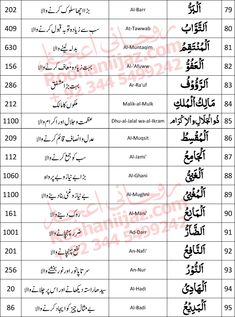 202 بڑا اچھا سلوک کرنے والا Al-Barr اَلْبَرُّ 79
409 سب سے زیادہ توبہ قبول کرنے والا At-Tawwab اَلتَّوَّابُ 80
630 بدلہ لینے والا Al-Muntaqim اَلْمُنْتَقِمُ 81
156 بہت زیادہ معاف کرنے والا Al-Afuww اَلْعَفُوُّ 82
286 بہت بڑا مشفق Ar-Ra'uf اَلرَّؤُوْفُ 83
212 ملکوں کا مالک Malik-al-Mulk مَالِكُ الْمُلْكِ 84
1100 عظمت وجلال اور اکرام والا Dhu-al-Jalal wa-al-Ikram ذُوالْجَلَالِ وَالْاِكْرَامِ 85
209 عدل وانصاف قائم کرنے والا Al-Muqsit اَلْمُقْسِطُ 86
112 سب کو جمع کرنے والا Al-Jami' اَلْجَامِعُ 87
1060 بڑا بے نیاز وبے پروا Al-Ghani اَلْغَنِيُّ 88
1100 بے نیاز وغنی بنا دینے والا Al-Mughni اَلْمُغْنِيُّ 89
161 روک دینے والا Al-Mani اَلْمَانِعُ 90
1001 ضرر پہنچانے والا Ad-Darr اَلضَّارُّ 91
201 نفع پہنچانے والا An-Nafi' اَلنَّافِعُ 92
256 سرتاپا نور اور نور بخشنے والا An-Nur اَلنُّوْرُ 93
20 سیدھا راستہ دکھانے اور اس پر چلانے والا Al-Hadi اَلْهَادِيُ 94
86 بے مثال چیز کو ایجاد کرنے والا Al-Badi اَلْبَدِيْعُ 95